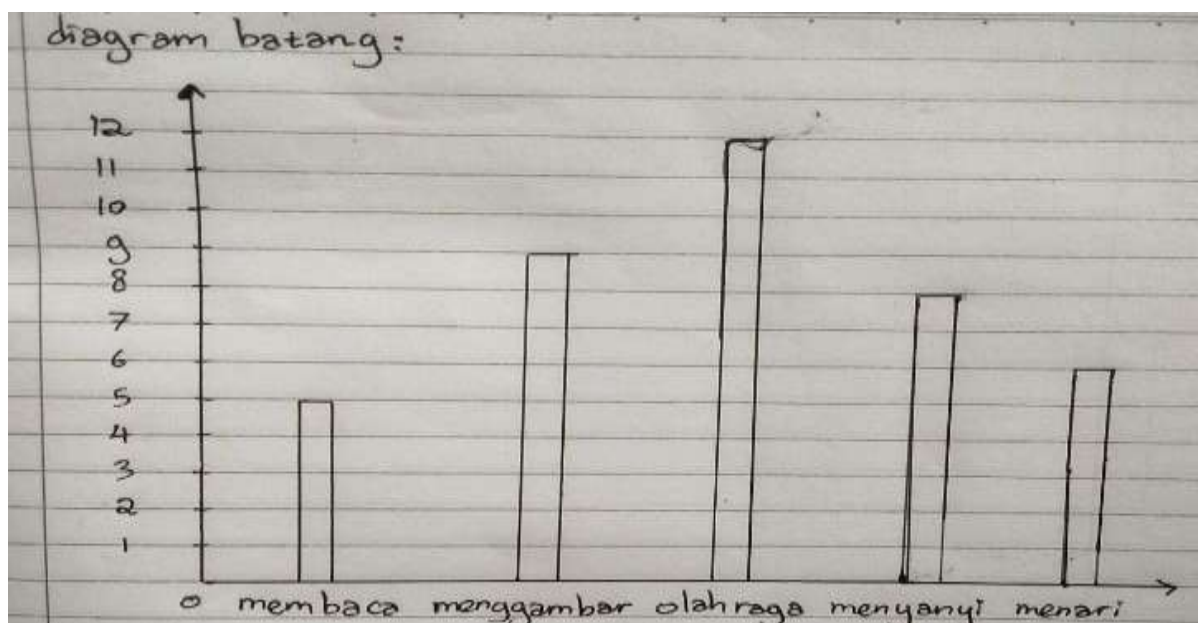 diagram batang:
12
11
10
9
8
7
6
5
4
3
2
1
0 membaca menggambar olahraga menyanyi menari